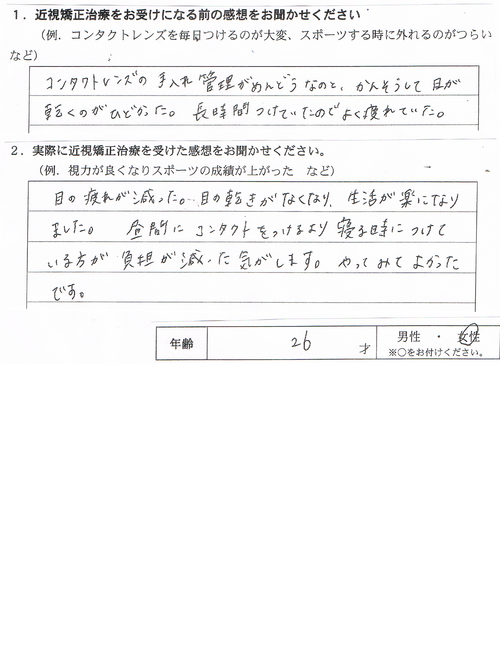 1．近視矯正治療をお受けになる前の感想をお聞かせください
（例．コンタクトレンズを毎日つけるのが大変、スポーツする時に外れるのがつらい
など）
コンタクトレンズの手入れ管理がめんどうなのと、かんそうして目が
乾くのがひどかった。長時間つけていたのでよく疲れていた。
2．実際に近視矯正治療を受けた感想をお聞かせください。
（例．視力が良くなりスポーツの成績が上がった　など）
目の疲れが減った。目の乾きがなくなり、生活が楽になり
ました。　昼間にコンタクトをつけるより寝る時につけて
いる方が負担が減った気がします。やってみてよかった
です。
年齢　26　才　男性　・　女性
※○をお付けください。